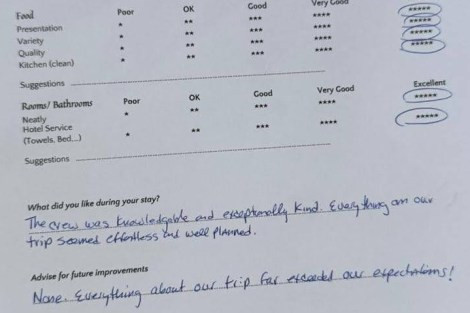 Food Poor OK Good Very Good
Presentation * ** *** **** *****
Variety * ** *** **** *****
Quality * ** *** **** *****
Kitchen (clean) * ** *** **** *****
Suggestions
Rooms/ Bathrooms Poor OK Good Very Good Excellent
Neatly * ** *** **** *****
Hotel Service
(Towels, Bed...) * ** *** **** *****
Suggestions
What did you like during your stay?
The crew was knowledgable and exceptionally kind. Everything on our
trip seemed effortless but well planned.
Advise for future improvements
None. Everything about our trip far exceeded our expectations!